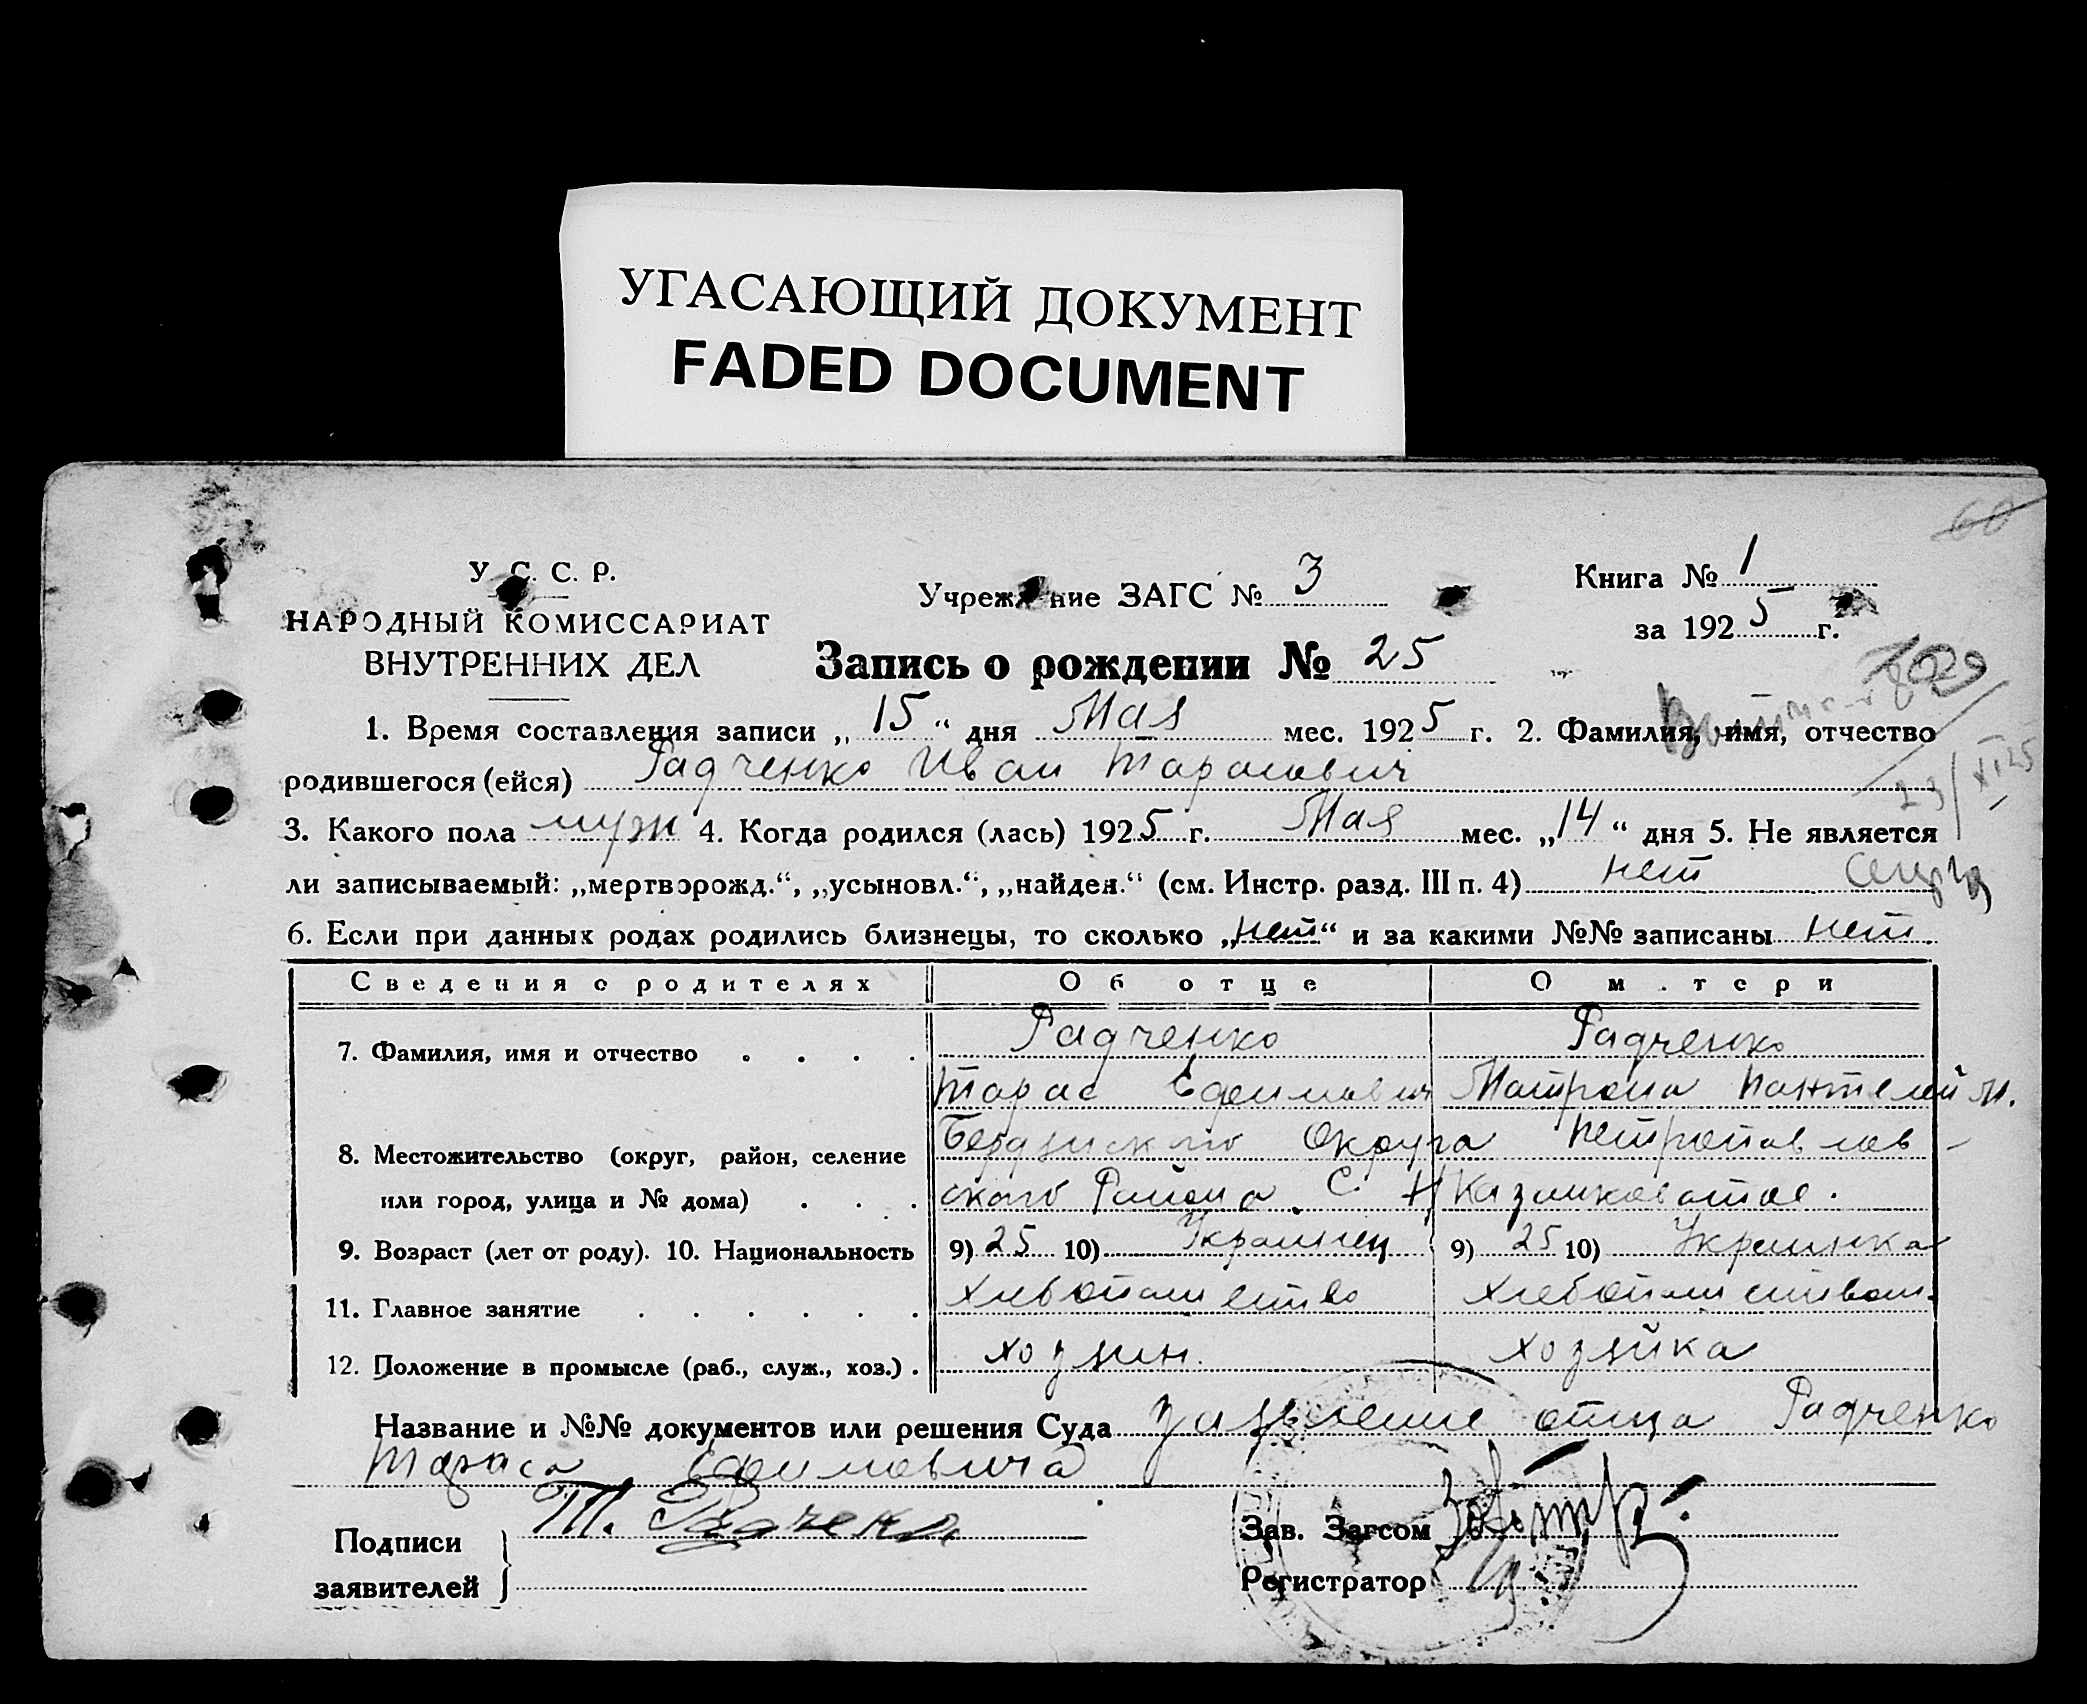 УГАСАЮЩИЙ ДОКУМЕНТ
FADED DOCUMENT
60
У. С. С. Р.
НАРОДНЫЙ КОМИССАРИАТ
ВНУТРЕННИХ ДЕЛ
Учреждение ЗАГС № 3
Книга № 1
за 1925 г.
Запись о рождении № 25
1. Время составления записи „15“ дня Мая мес. 1925 г. 2. Фамилия, имя, отчество
родившегося (ейся) Радченко Иван Тарасович
23/XI 25
3. Какого пола муж 4. Когда родился (лась) 1925 г. Мая мес. „14“ дня 5. Не является
ли записываемый: „мертворожд.“, „усыновл.“, „найден.“ (см. Инстр. разд. III п. 4) нет
6. Если при данных родах родились близнецы, то сколько „нет“ и за какими №№ записаны нет
Сведения о родителях Об отце О матери
7. Фамилия, имя и отчество . . . . Радченко Радченко
Тарас Ефимович Матрона Пантелейм.
8. Местожительство (округ, район, селение Бердянского Округа Петропавлов-
или город, улица и № дома) . . . ского Района С. Н Казанковатое.
9. Возраст (лет от роду). 10. Национальность 9) 25 10) Украинец 9) 25 10) Украинка
11. Главное занятие . . . . . . Хлебопашество Хлебопашеством.
12. Положение в промысле (раб., служ., хоз.) . хозяин. хозяйка
Название и №№ документов или решения Суда заявление отца Радченко
Тараса Ефимовича
Подписи
заявителей
Т. Радченко
Зав. Загсом
Регистратор